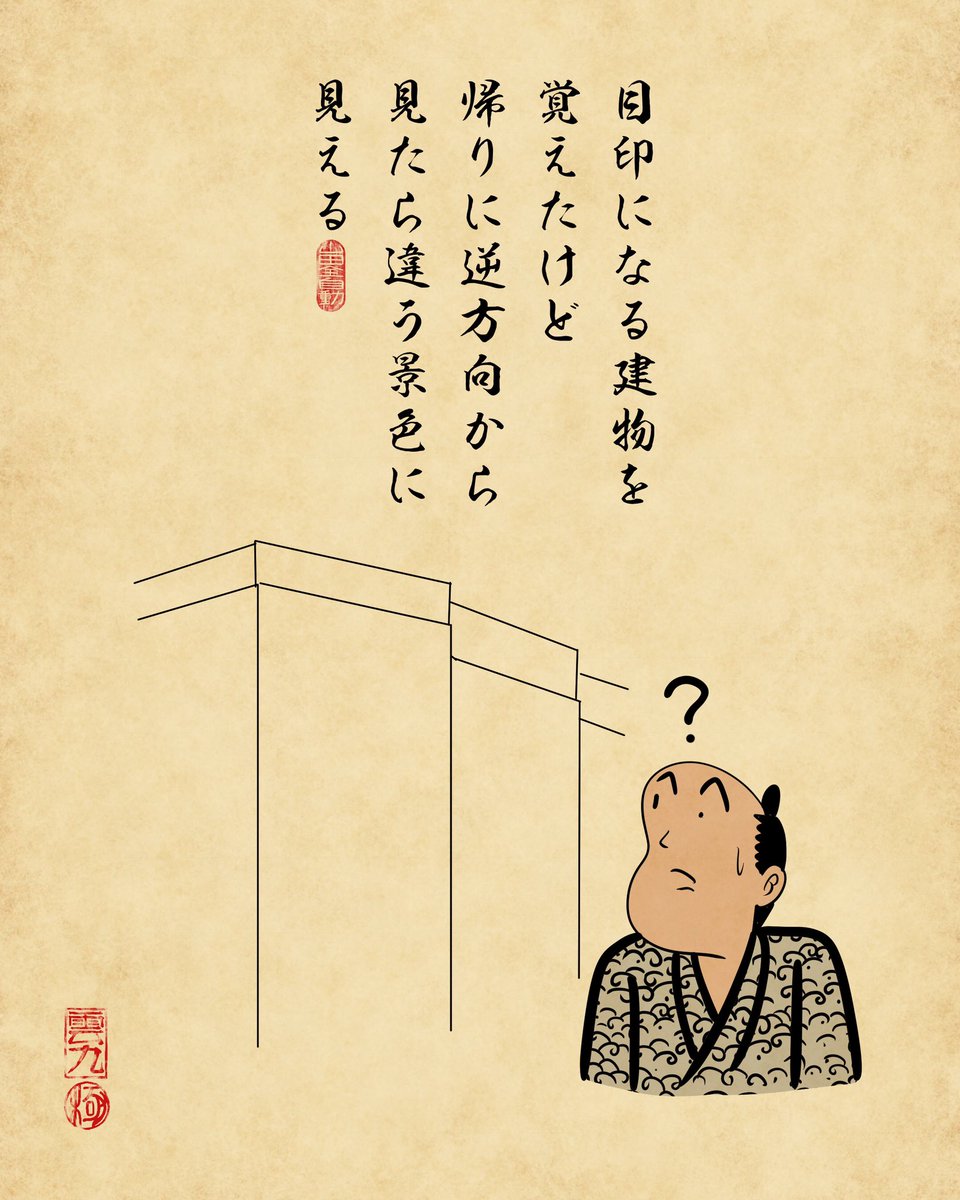 目印になる建物を
覚えたけど
帰りに逆方向から
見たら違う景色に
見える
?